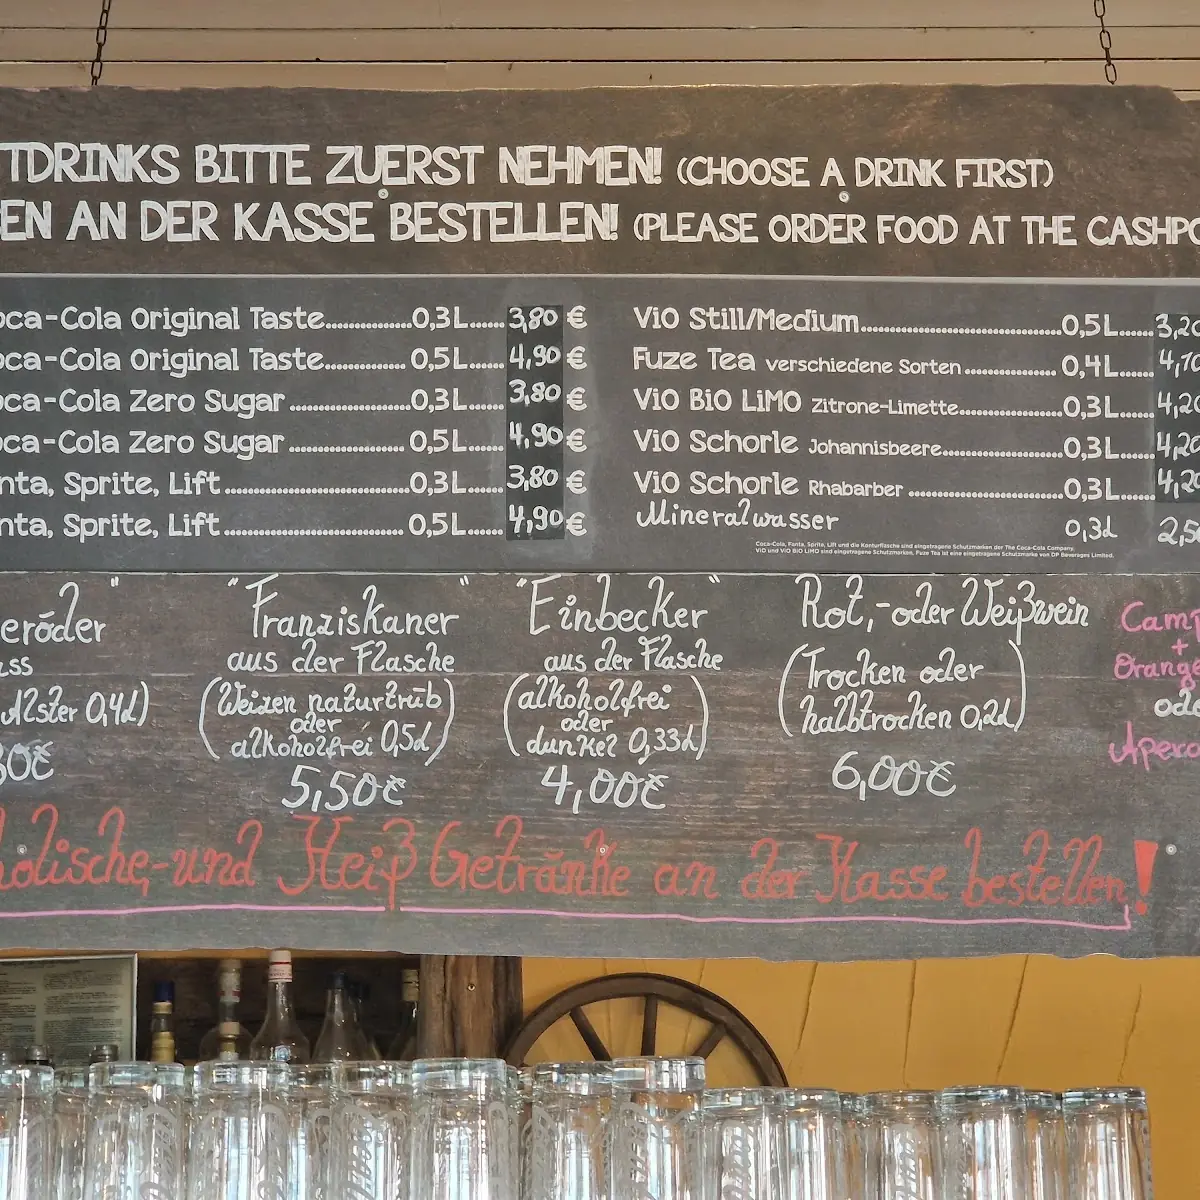 TDRINKS BITTE ZUERST NEHMEN! (CHOOSE A DRINK FIRST)
EN AN DER KASSE BESTELLEN! (PLEASE ORDER FOOD AT THE CASHPO
oca-Cola Original Taste 0,3L 3,80 €
oca-Cola Original Taste 0,5L 4,90 €
oca-Cola Zero Sugar 0,3L 3,80 €
oca-Cola Zero Sugar 0,5L 4,90 €
nta, Sprite, Lift 0,3L 3,80 €
nta, Sprite, Lift 0,5L 4,90 €
ViO Still/Medium 0,5L 3,20
Fuze Tea verschiedene Sorten 0,4L 4,10
ViO BiO LiMO Zitrone-Limette 0,3L 4,20
ViO Schorle Johannisbeere 0,3L 4,20
ViO Schorle Rhabarber 0,3L 4,20
Mineralwasser 0,3l 2,5
Coca-Cola, Fanta, Sprite, Lift und die Konturflasche sind eingetragene Schutzmarken der The Coca-Cola Company.
ViO und ViO BiO LiMO sind eingetragene Schutzmarken, Fuze Tea ist eine eingetragene Schutzmarke von DP Beverages Limited.
eröder"
ass
Alster 0,4l)
80€
"Franziskaner"
aus der Flasche
(Weizen naturtrüb
oder
alkoholfrei 0,5l)
5,50€
"Einbecker"
aus der Flasche
(alkoholfrei
oder
dunkel 0,33l)
4,00€
Rot,-oder Weißwein
(Trocken oder
halbtrocken 0,2l)
6,00€
Camp
+
Orange
ode
Apero
holische,-und Heiß Getränke an der Kasse bestellen!